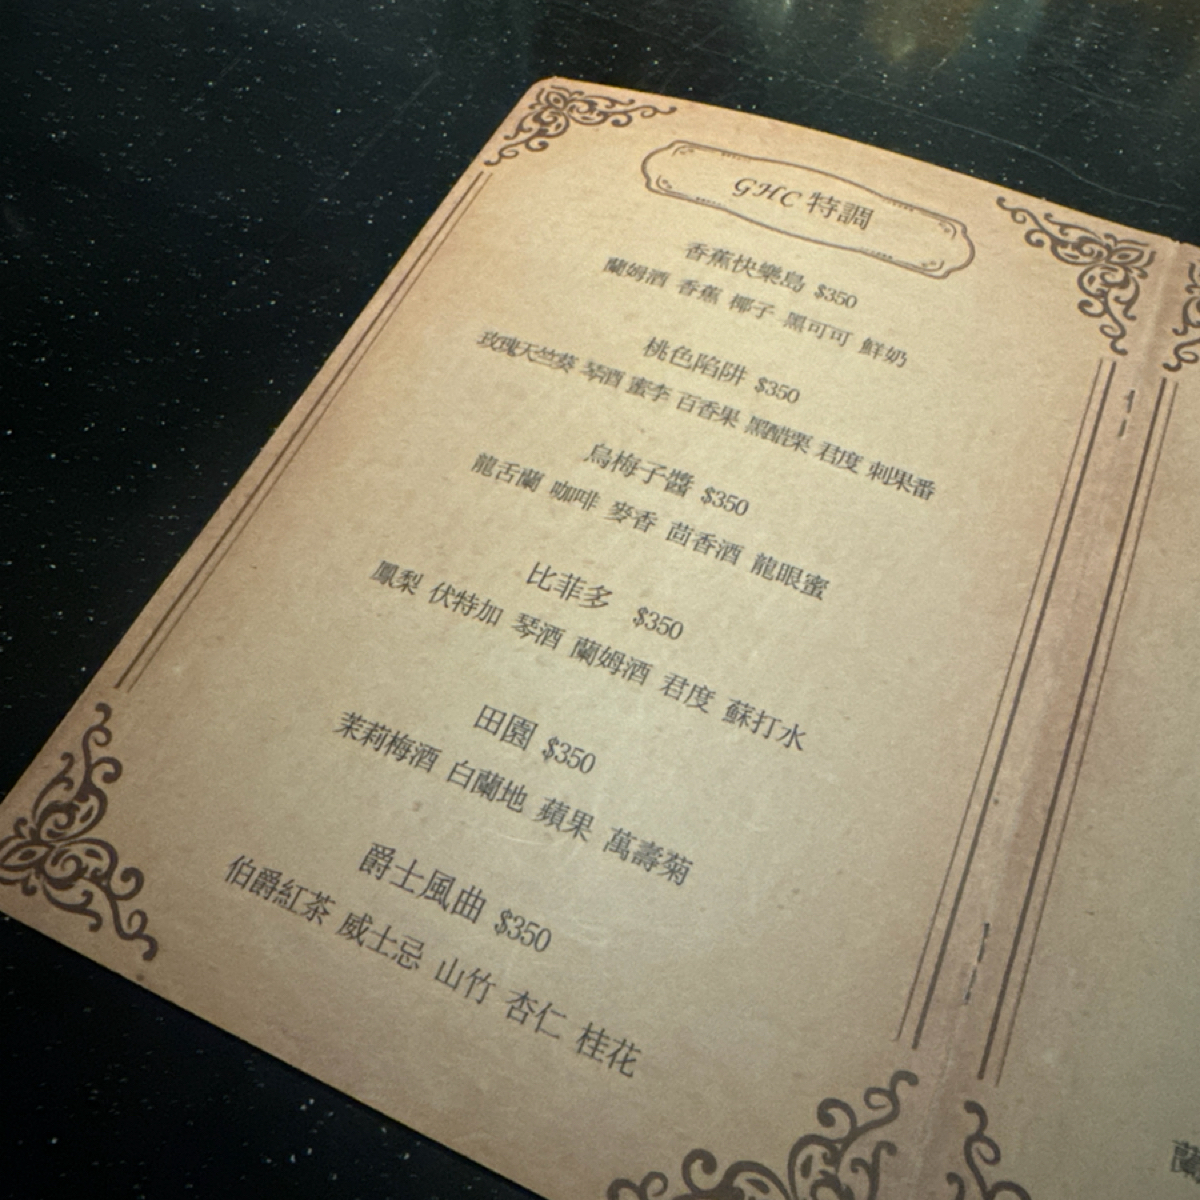 GHC 特調
香蕉快樂島 $350
蘭姆酒 香蕉 椰子 黑可可 鮮奶
桃色陷阱 $350
玫瑰天竺葵 琴酒 蜜李 百香果 黑醋栗 君度 刺果番
烏梅子醬 $350
龍舌蘭 咖啡 麥香 茴香酒 龍眼蜜
比菲多 $350
鳳梨 伏特加 琴酒 蘭姆酒 君度 蘇打水
田園 $350
茉莉梅酒 白蘭地 蘋果 萬壽菊
爵士風曲 $350
伯爵紅茶 威士忌 山竹 杏仁 桂花
蘭